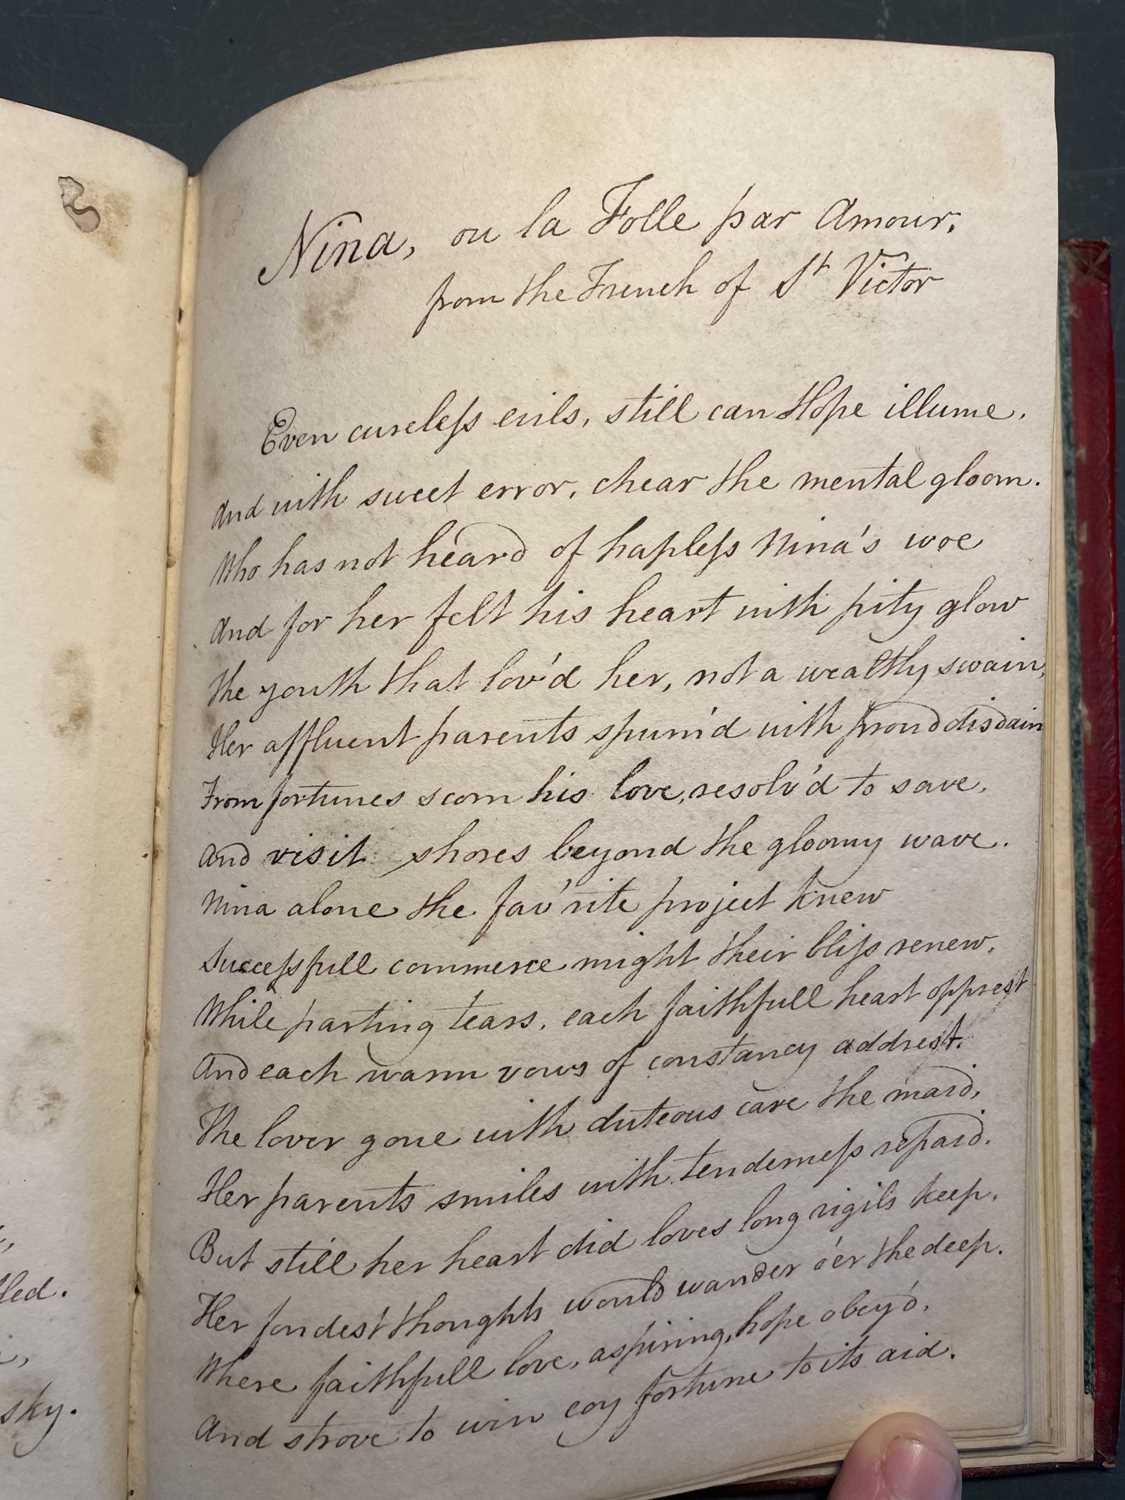 Nina, ou la Folle par Amour,
from the French of St Victor
Even cureless evils, still can Hope illume,
And with sweet error, chear the mental gloom.
Who has not heard of hapless Nina's woe
And for her felt his heart with pity glow
The youth that lov'd her, not a wealthy swain,
Her affluent parents spurn'd with proud disdain
From fortunes scorn his love, resolv'd to save,
And visit shores beyond the gloomy wave.
Nina alone the fav'rite project knew
Successfull commerce might their bliss renew,
While parting tears, each faithfull heart opprest
And each warm vows of constancy addrest.
The lover gone with duteous care the maid,
Her parents smiles with tenderness repaid.
But still her heart did loves long vigils keep,
Her fondest thoughts would wander o'er the deep.
Where faithfull love, aspiring, hope obey'd,
And strove to win coy fortune to its aid.
,
led.
,
sky.